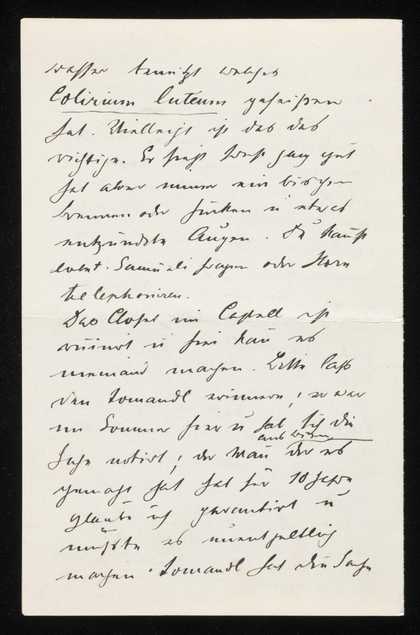 wasser benützt welches
Colirium luteum geheißen
hat. Vielleicht ist das das
richtige. Er sieht sonst ganz gut
hat aber immer ein bischen
brennen oder jucken u etwas
entzündete Augen. Du kannst
event. Samueli fragen oder
telephoniren.
Das Closet im Castell ist
ruinirt u hier kan es
niemand machen. Bitte lass
den Tomandl erinnern, er war
im Sommer hier u hat sich die
Sache notirt; der Man aus Wien der es
gemacht hat hat für 10 Jahre
glaube ich garantirt u
müsste es unentgeltlich
machen. Tomandl hat die Sache